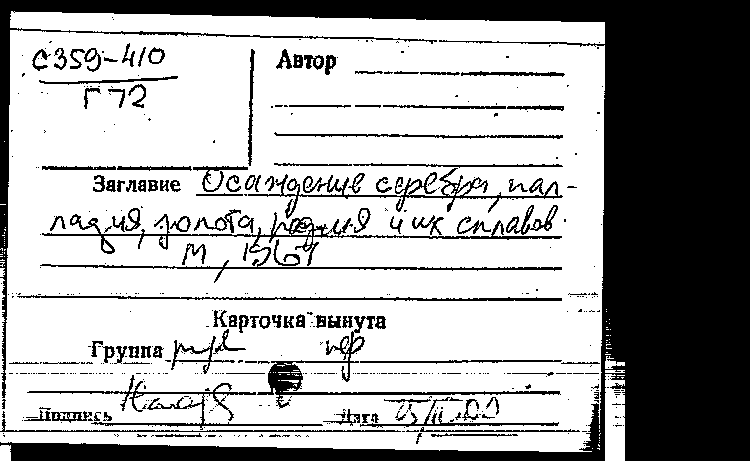 С359-410
Г 72
Автор
Заглавие Осаждение серебра, пал-
ладия, золота, родия и их сплавов.
М, 1967
Карточка вынута
Группа
Подпись
Дата